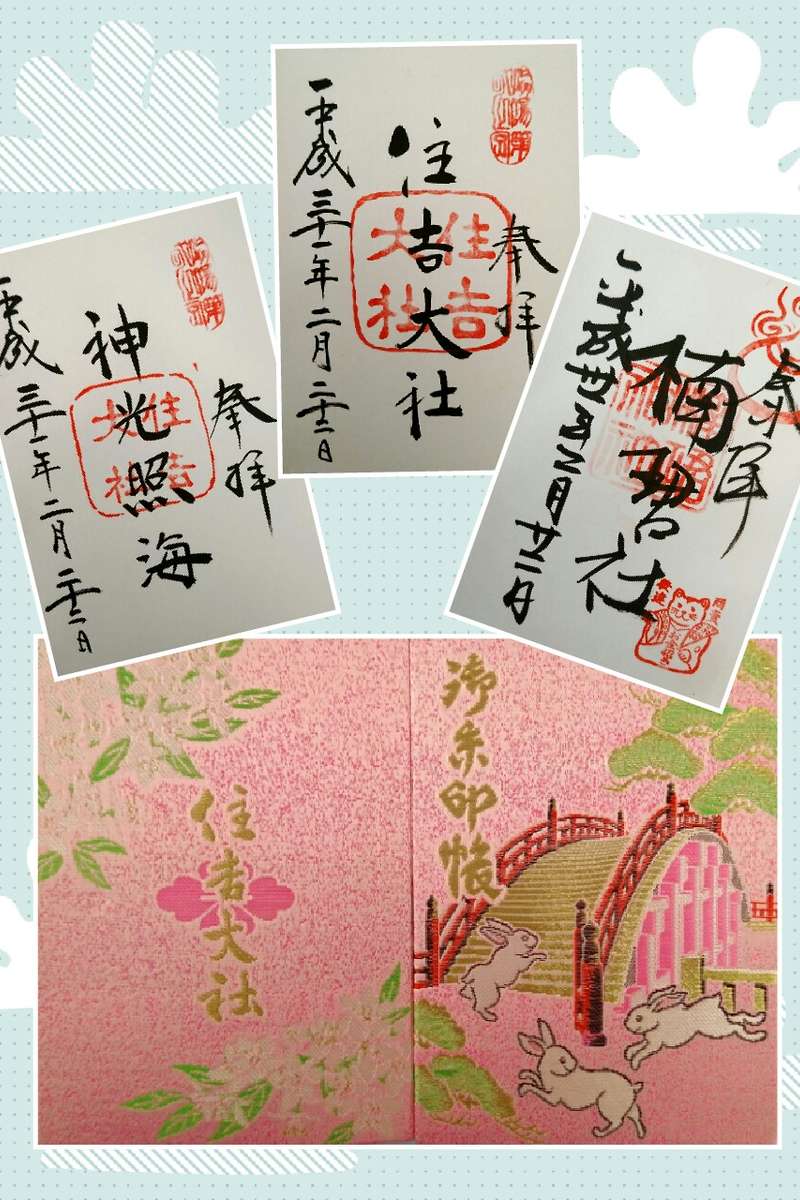 奉拝
神光照海
住吉大社
平成三十一年二月二十二日
奉拝
住吉大社
住吉大社
平成三十一年二月二十二日
奉拝
楠珺社
平成卅一年二月廿二日
御朱印帳
住吉大社